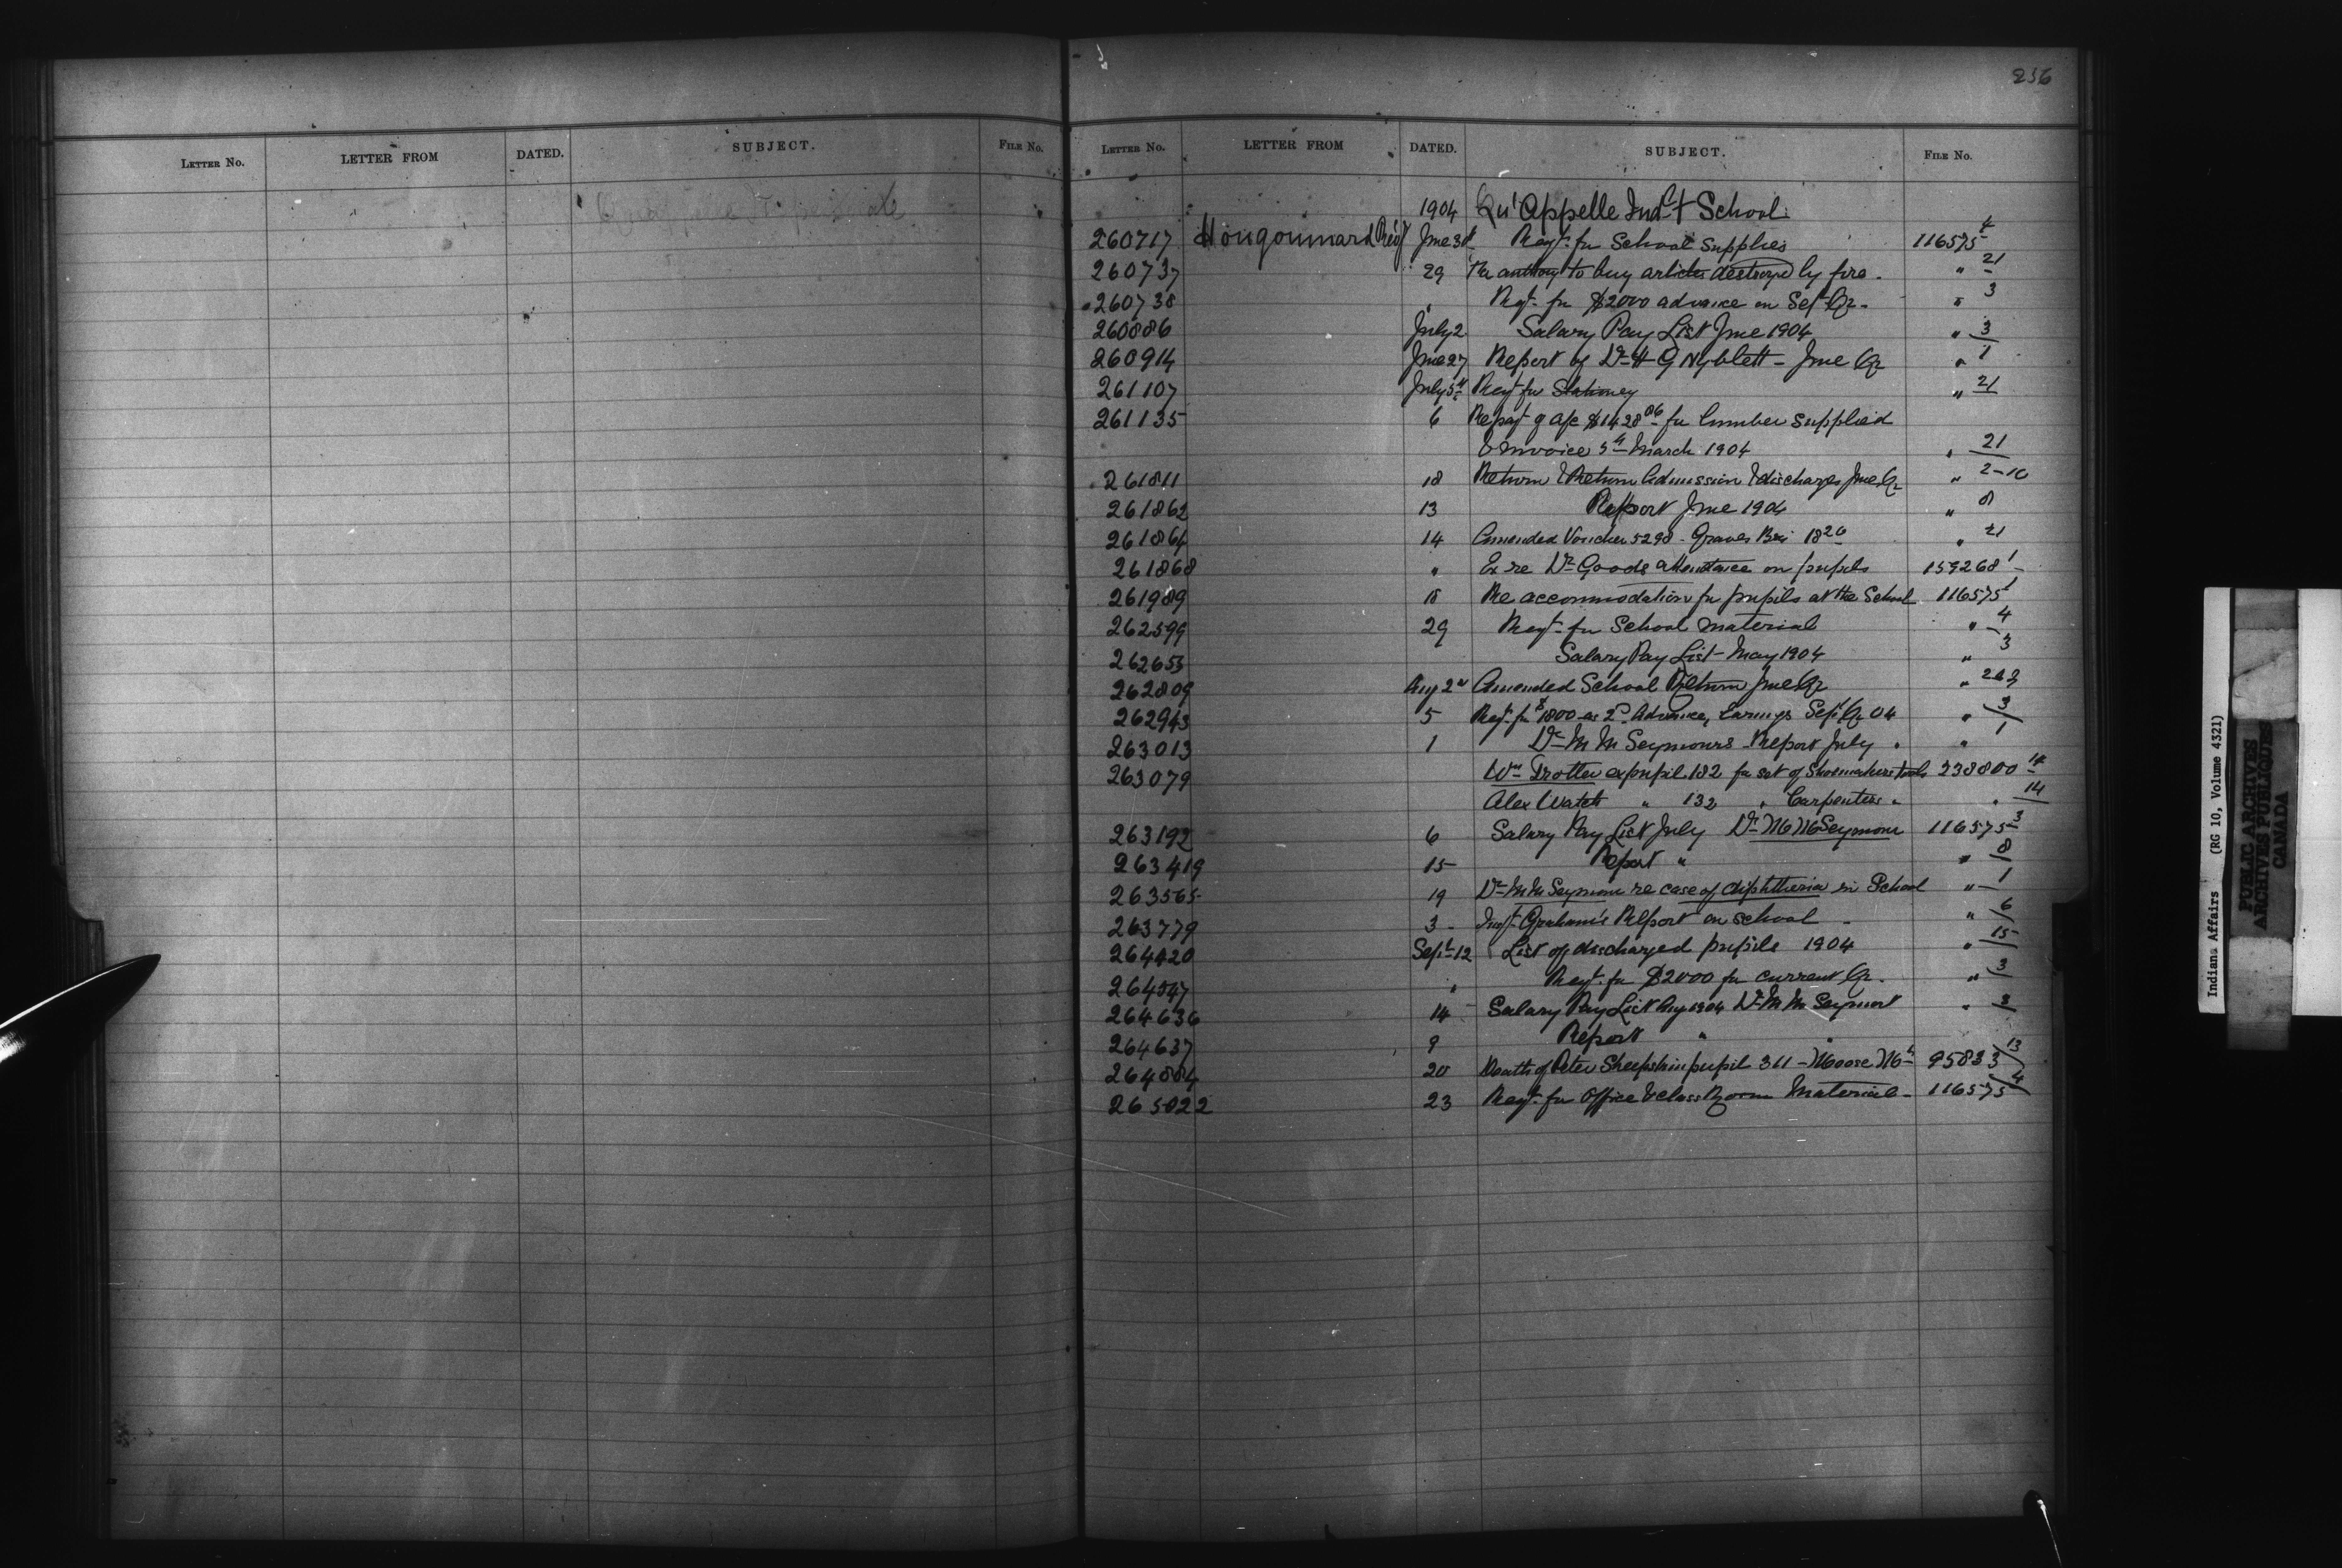 LETTER NO. LETTER FROM DATED. SUBJECT. FILE NO.
236
LETTER NO. LETTER FROM DATED. SUBJECT. FILE NO.
1904 Qu'Appelle Indt School
260717 Hougoumard Revd June 30 Reqt. for School Supplies 116575 4
260737 29 Re authory to buy articles destroyed by fire. " 21
260738 " Reqt. for $2000 advance on Sept Qr. " 3
260886 July 2 Salary Pay List June 1904 " 3
260914 June 27 Report of Dr H G Nyblett - June Qr " 1
261107 July 5th Reqt for Stationery " 21
261135 6 Repayt of a/c $1428.06 for lumber supplied
& Invoice 5th March 1904 " 21
261811 18 Return & Return Admission & discharges June Qr " 2-10
261862 13 Report June 1904 " 8
261864 14 Amended Voucher 5298 - Graves Bri 18 20 " 21
261868 " Ex re Dr Goods attendance on pupils 159268 1
261989 18 Re accommodation for pupils at the School 116575 1
262599 29 Reqt. for School material " 4
262653 Salary Pay List - May 1904 " 3
262809 Aug 2nd Amended School Return June Qr "
262943 5 Reqt. for $1800 as 2nd Advance, Earnings Sept Qr 04 " 3
263013 1 Dr M M Seymours Report July " " 1
263079 Wm Trotter expupil 182 for set of Shoemakers tools 238800 14
Alex Watch " 132 " Carpenters " " 14
263192 6 Salary Pay List July Dr M M Seymour 116575 3
263419 15 Report " " 8
263565 19 Dr M M Seymour re case of diphtheria in School " 1
263779 3 - Inspt Graham's Report on school - " 6
264420 Sept 12 List of discharged pupils 1904 " 15
264547 " Reqt. for $2000 for current Qr. " 3
264636 14 Salary Pay List Aug 1904 Dr M M Seymour " 3
264637 9 Report " "
264884 20 Death of Peter Sheepskin pupil 311 - Moose Mt 95833 13
265022 23 Reqt. for Office & class Room Material - 116575 4
Indian Affairs (RG 10, Volume 4321)
PUBLIC ARCHIVES
ARCHIVES PUBLIQUES
CANADA